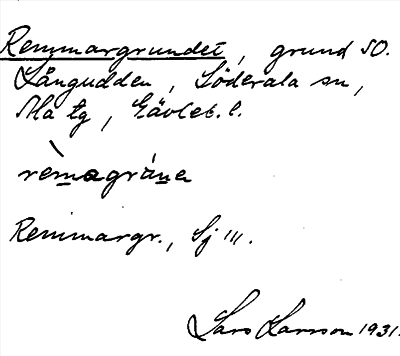 Remmargrundet, grund SO.
Långudden, Söderala sn,
Ala tg, Gävleb. l.
rèmagrúna
Remmargr., Sj III.
Lars Larsson 1931.